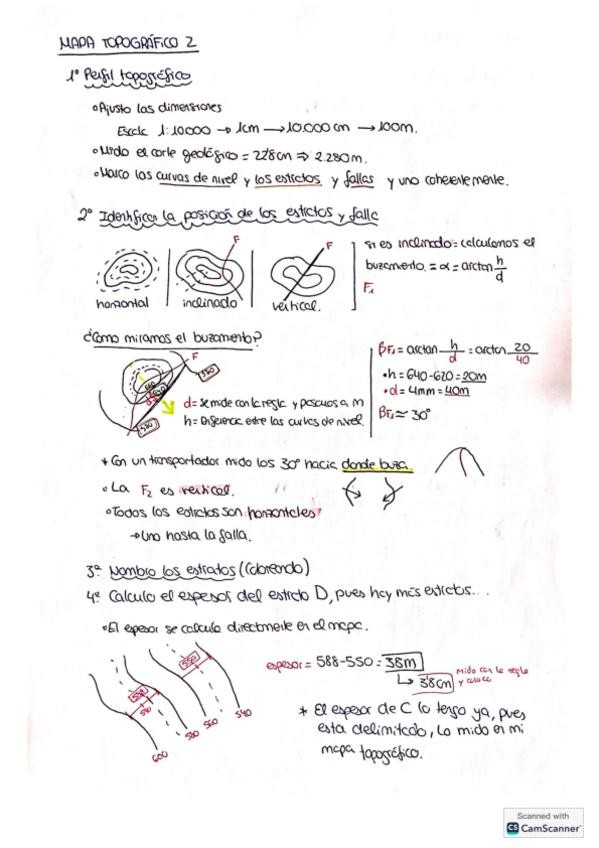 MAPA TOPOGRÁFICO 2
1º Perfil topográfico
• Ajusto las dimensiones
Escala 1:10.000 → 1cm → 10.000 cm → 100m.
• Mido el corte geológico = 22'8cm ⇒ 2.280m.
• Marco las curvas de nivel y los estratos y fallas y uno coherentemente.
2º Identificar la posición de los estratos y falla
F
F
horizontal
inclinado
vertical.
Si es inclinado = calculamos el
buzamiento. = α = arctan h/d
F₁
¿Cómo miramos el buzamiento?
F
d = se mide con la regla y pasamos a m
h = Diferencia entre las curvas de nivel.
βF₁ = arctan h/d = arctan 20/40
• h = 640-620 = 20m
• d = 4mm = 40m
βF₁ ≈ 30°
* Con un transportador mido los 30° hacia donde buza.
• La F₂ es vertical.
• Todos los estratos son horizontales
→ Uno hasta la falla.
3º Nombro los estratos (Coloreando)
4º Calculo el espesor del estrato D, pues hay más estratos...
• El espesor se calcula directamente en el mapa.
550
600
580
560
540
espesor = 588-550 = 38m
↳ 3'8cm
mido con la regla
y coloco
* El espesor de C lo tengo ya, pues
esta delimitado, lo mido en mi
mapa topográfico.
Scanned with
CS CamScanner